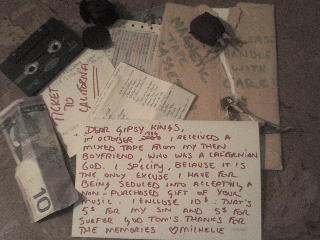 MAGNETIC TAPE
PLEASE
HANDLE
WITH
CARE
TICKET
TO
CALIFORNIA
10
DEAR GIPSY KINGS,
IN OCTOBER 1996 I RECEIVED A
MIXED TAPE FROM MY THEN
BOYFRIEND, WHO WAS A CALIFORNIAN
GOD. I SPECIFY, BECAUSE IT IS
THE ONLY EXCUSE I HAVE FOR
BEING SEDUCED INTO ACCEPTING A
NON-PURCHASED GIFT OF YOUR
MUSIC. I ENCLOSE 10$: THAT'S
5$ FOR MY SIN AND 5$ FOR
SURFER GOD TOM'S THANKS FOR
THE MEMORIES ♡MICHELLE